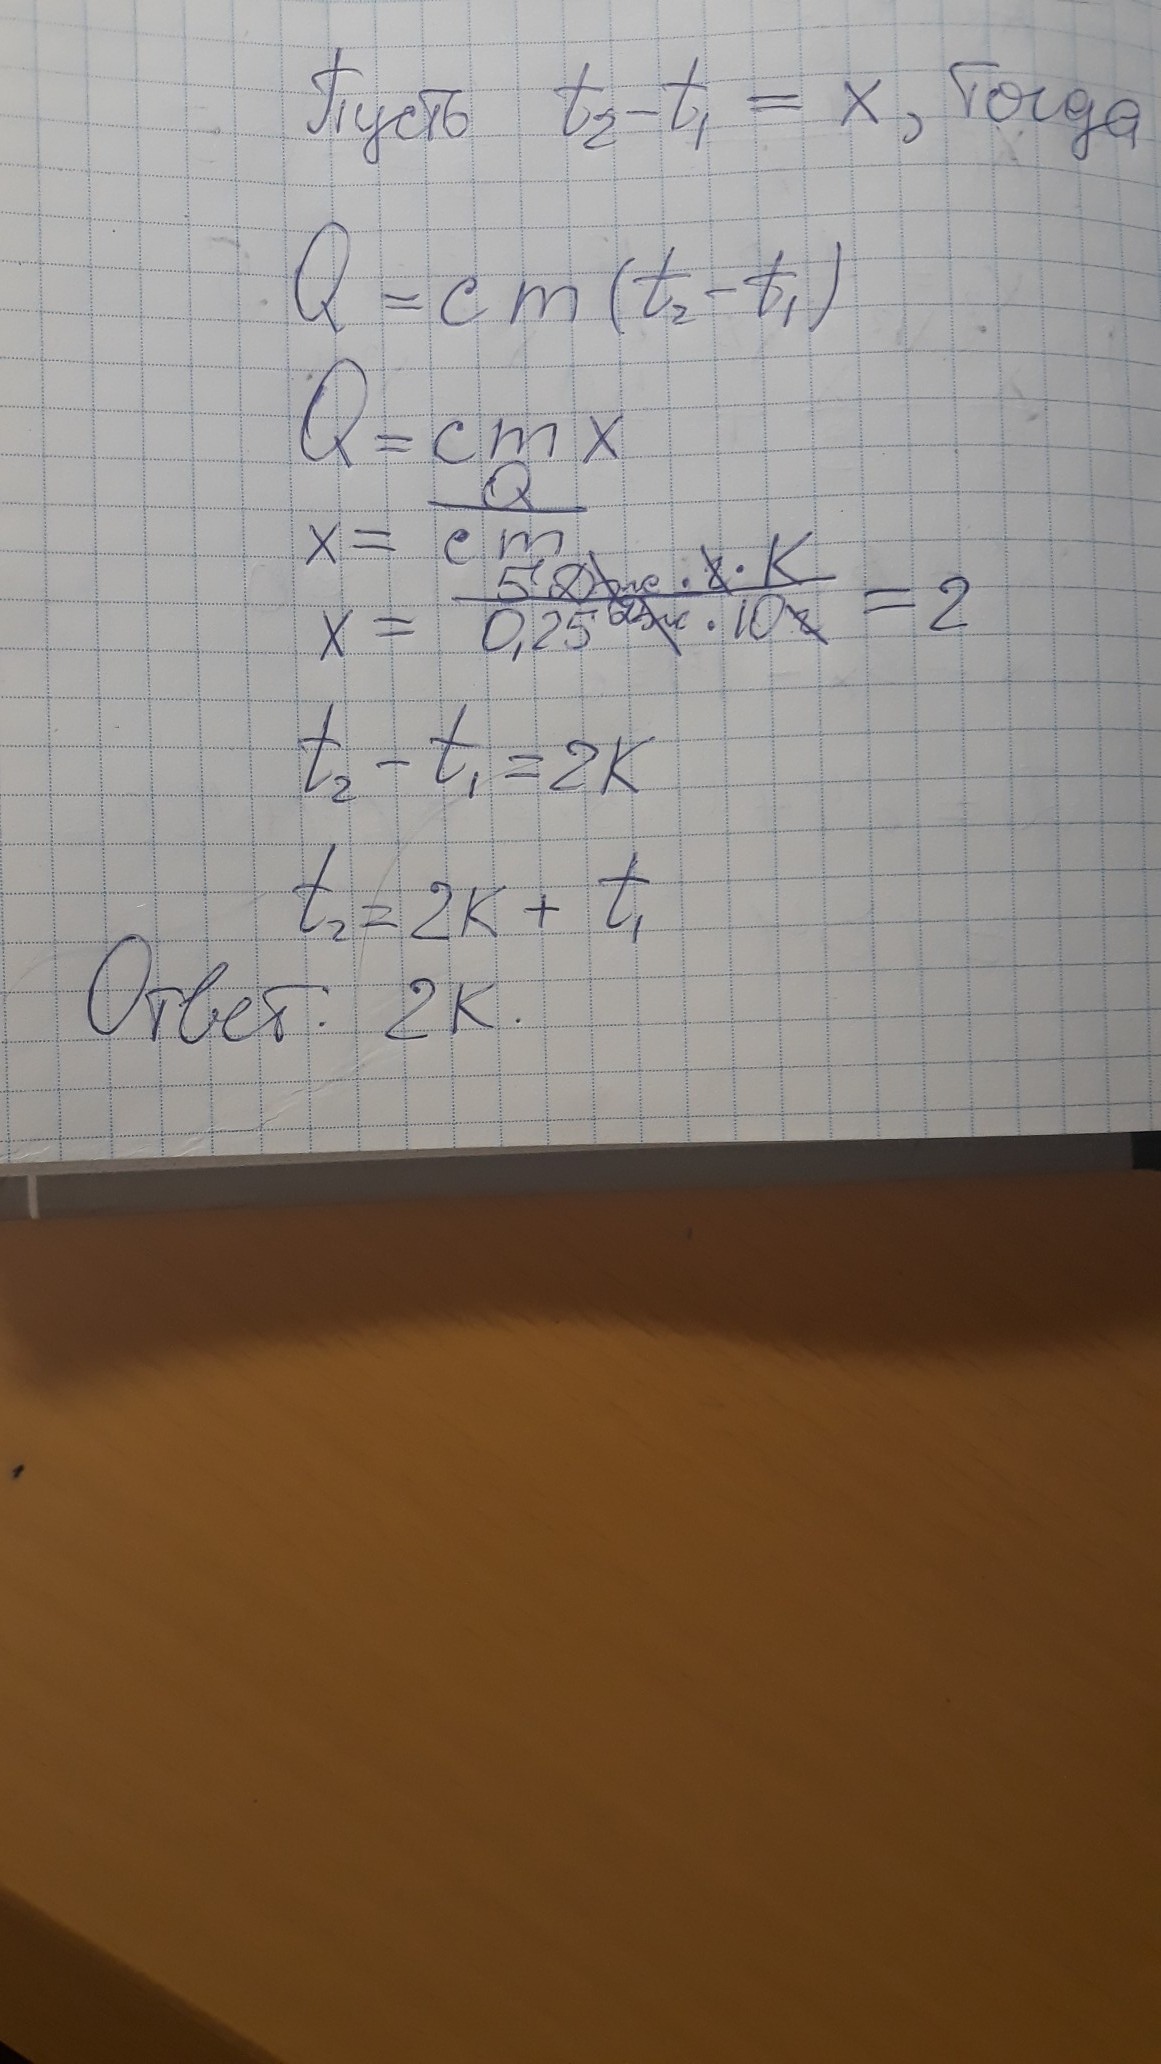 Пусть t₂-t₁ = x, тогда
Q = c m (t₂-t₁)
Q = c m x
x = Q / c m
x = 5 Дж · г · К / 0,25 Дж · 10 г = 2
t₂ - t₁ = 2К
t₂ = 2К + t₁
Ответ: 2К.